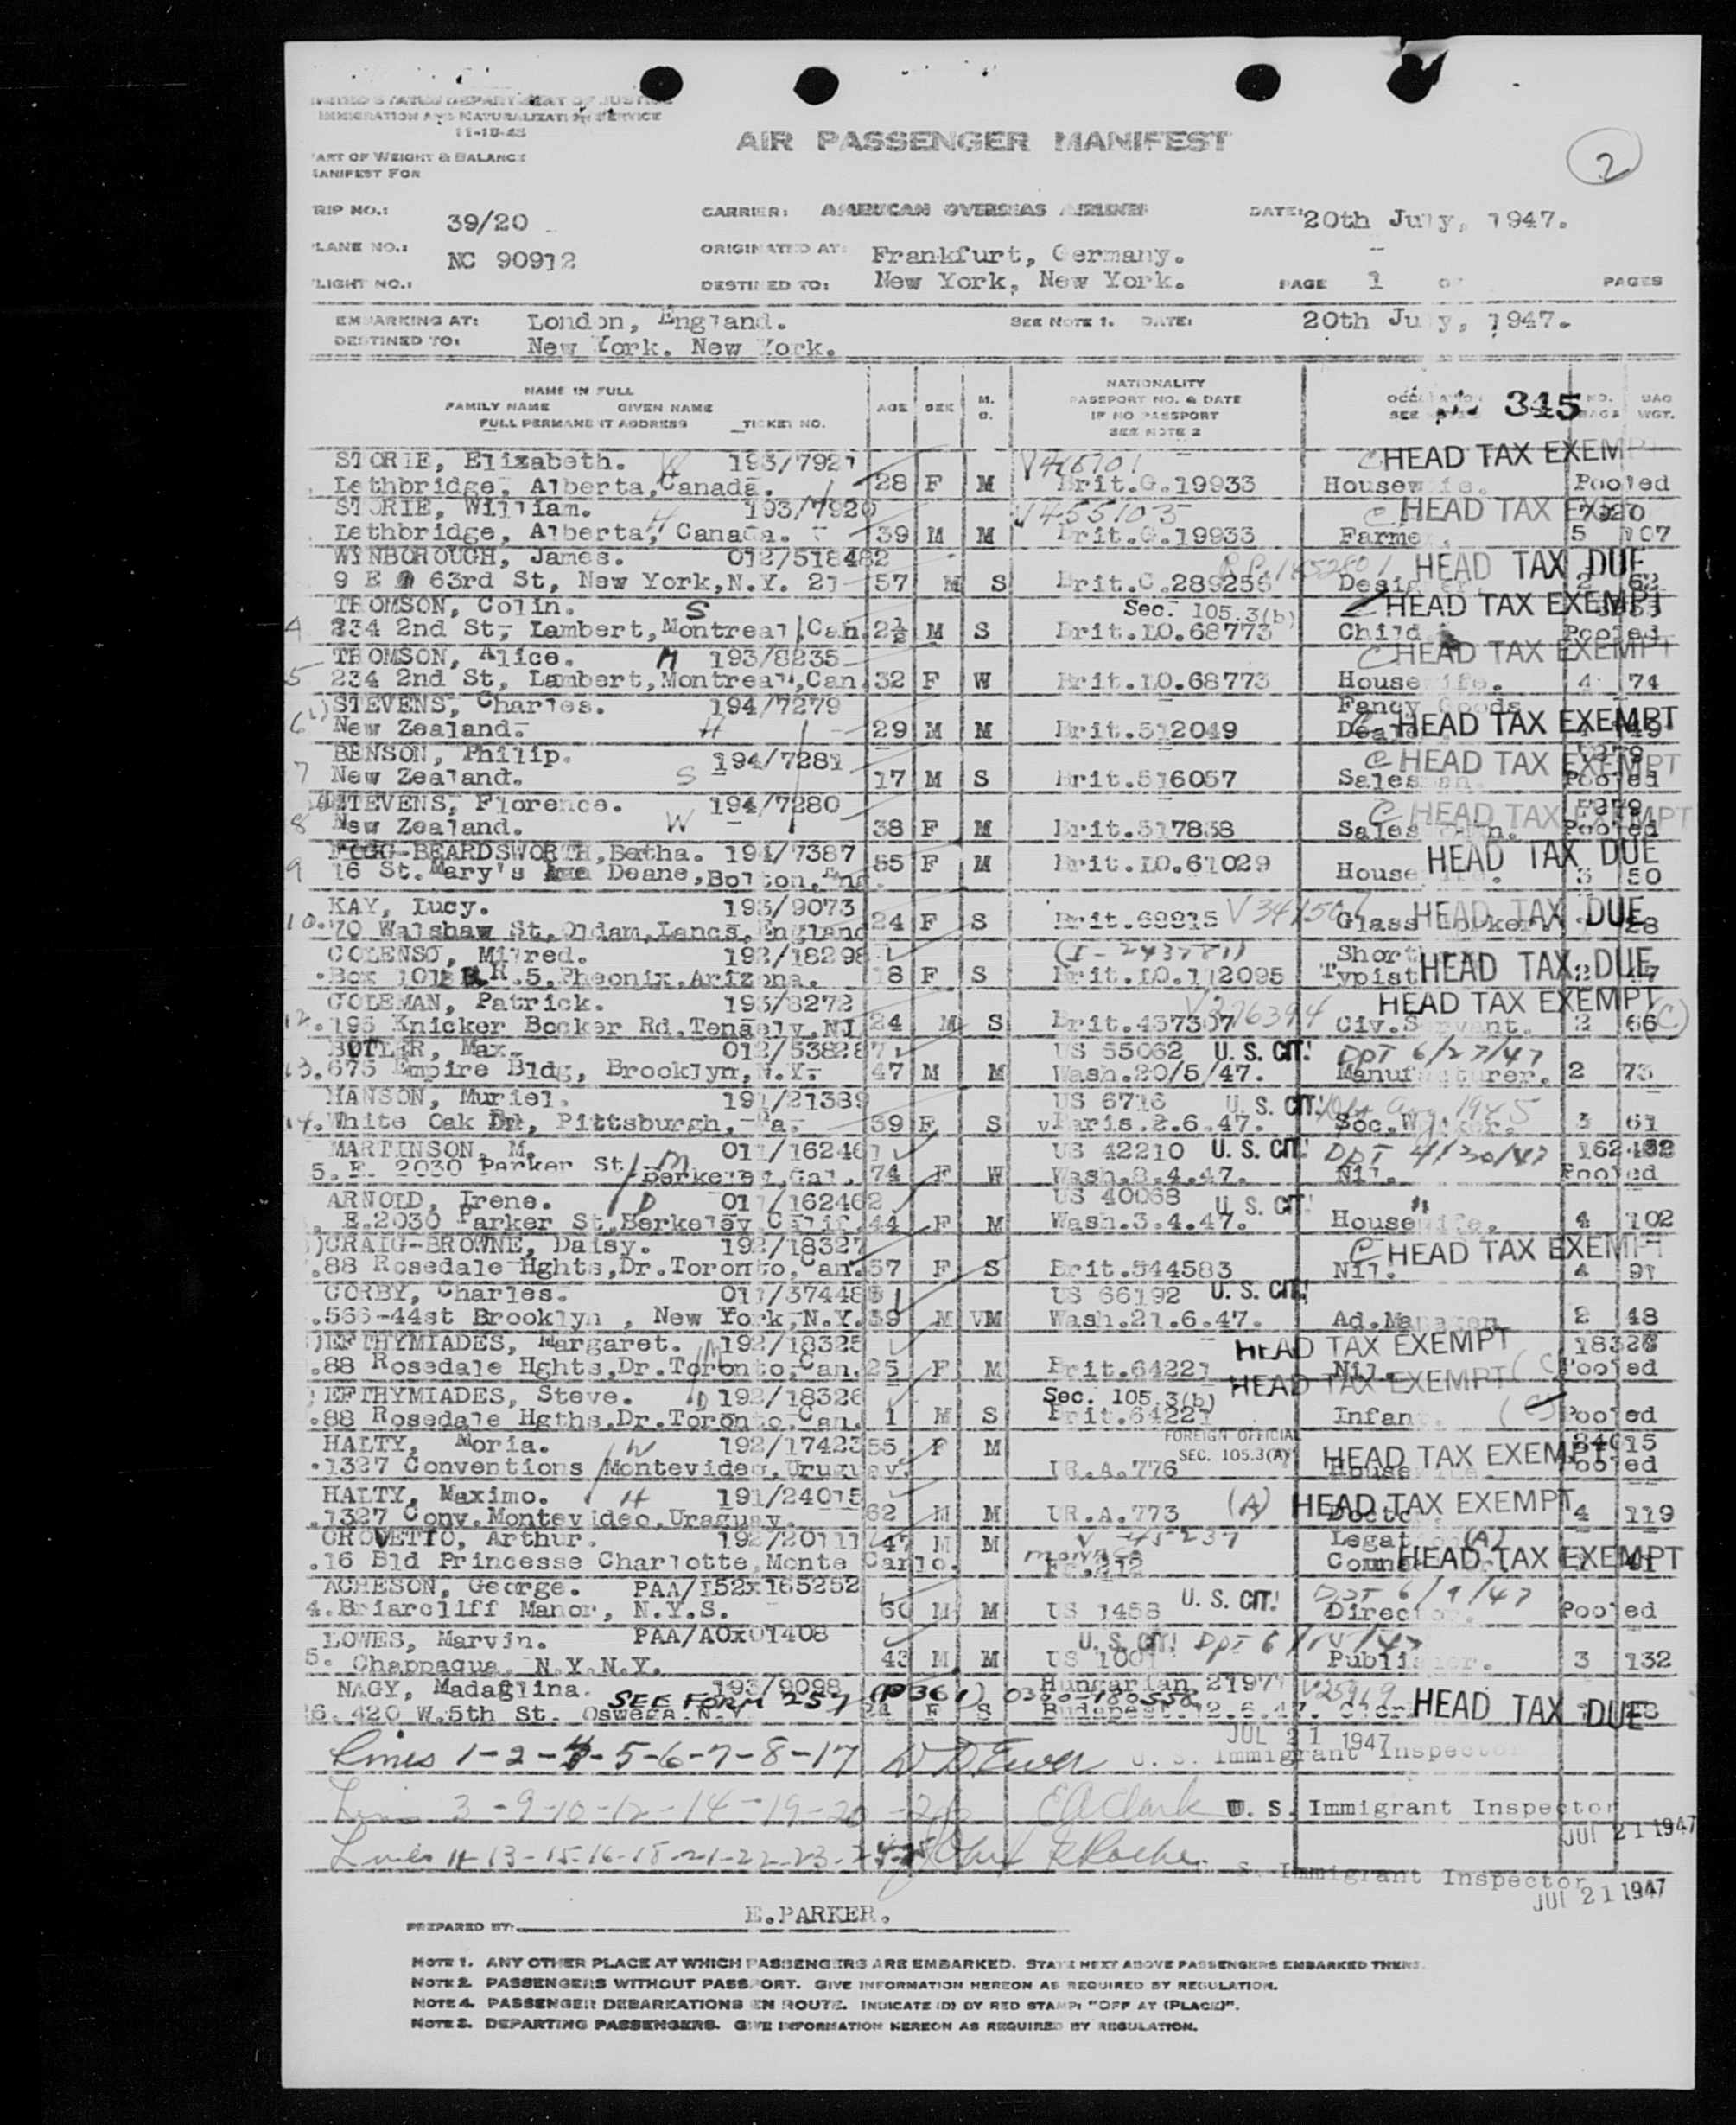 UNITED STATES DEPARTMENT OF JUSTICE
IMMIGRATION AND NATURALIZATION SERVICE
11-18-45
AIR PASSENGER MANIFEST
2
ART OF WEIGHT & BALANCE
MANIFEST FOR
RIP NO.: 39/20 CARRIER: AMERICAN OVERSEAS AIRLINES DATE: 20th July, 1947.
LANE NO.: NC 90912 ORIGINATED AT: Frankfurt, Germany.
LIGHT NO.: DESTINED TO: New York, New York. PAGE 1 OF PAGES
EMBARKING AT: London, England. SEE NOTE 1. DATE: 20th July, 1947.
DESTINED TO: New York. New York.
NAME IN FULL
FAMILY NAME GIVEN NAME
FULL PERMANENT ADDRESS TICKET NO.
AGE SEX M. S.
NATIONALITY
PASSPORT NO. & DATE
IF NO PASSPORT
SEE NOTE 2
SEE 345 NO. BAGS BAG WGT.
STORIE, Elizabeth. W 193/7921 V468701 C HEAD TAX EXEMPT
Lethbridge, Alberta, Canada. 28 F M Brit.C.19933 Housewife. Pooled
STORIE, William. 193/7920 V455103 C HEAD TAX EXEMPT 7920
Lethbridge, Alberta, H Canada. 39 M M Brit.C.19933 Farmer. 5 107
WYNBOROUGH, James. 012/518482 HEAD TAX DUE
9 E 63rd St, New York,N.Y. 21 57 M S Brit.C.289256 Designer 2 62
THOMSON, Colin. S Sec. 105.3(b) HEAD TAX EXEMPT
4 234 2nd St, Lambert,Montreal,Can. 2½ M S Brit.LO.68773 Child Pooled
THOMSON, Alice. M 193/8235 C HEAD TAX EXEMPT
5 234 2nd St, Lambert,Montreal,Can 32 F W Brit.LO.68773 Housewife. 4 74
STEVENS, Charles. 194/7279 Fancy Goods
6 New Zealand. H 29 M M Brit.512049 Dealer HEAD TAX EXEMPT 149
BENSON, Philip. 194/7281 C HEAD TAX EXEMPT 7279
7 New Zealand. S 17 M S Brit.516057 Salesman. Pooled
STEVENS, Florence. 194/7280 C HEAD TAX EXEMPT 7279
8 New Zealand. W 38 F M Brit.517838 Pooled
FOGG-BEARDSWORTH, Bertha. 194/7387 HEAD TAX DUE
9 16 St.Mary's Deane, Bolton, Eng. 55 F M Brit.LO.61029 Housewife. 3 50
KAY, Lucy. 193/9073
10. 70 Walshaw St,Oldam,Lancs,England 24 F S Brit.69915 Glass HEAD TAX DUE 28
COLENSO, Mildred. 192/18298 (I-243781) Short
Box 1018 R.R.5,Pheonix,Arizona. 18 F S Brit.LO.112095 Typist HEAD TAX DUE 2 47
COLEMAN, Patrick. 193/8272 V376394 HEAD TAX EXEMPT
12. 195 Knicker Bocker Rd,Tenafly,NJ 24 M S Brit.437307 Civ.Servant. 2 66 (C)
BUTLER, Max. 012/538287 US 55062 U. S. CIT. DPT 6/27/47
13. 675 Empire Bldg, Brooklyn,N.Y. 47 M M Wash.20/5/47. Manufacturer. 2 73
HANSON, Muriel. 191/21389 US 6716 U. S. CIT. Aug. 1945
14. White Oak Dr, Pittsburgh, Pa. 39 F S Paris.2.6.47. Soc.Worker. 3 61
MARTINSON, M. 011/162461 US 42210 U. S. CIT. DPT 4/30/47 162462
5. E. 2030 Parker St, M Berkeley,Cal. 74 F W Wash.8.4.47. Nil. Pooled
ARNOLD, Irene. D 011/162462 US 40068 U. S. CIT. "
E.2030 Parker St,Berkeley,Calif. 44 F M Wash.3.4.47. Housewife. 4 102
CRAIG-BROWNE, Daisy. 192/18327 C HEAD TAX EXEMPT
.88 Rosedale Hghts,Dr.Toronto,Can. 57 F S Brit.544583 Nil. 4 91
CORBY, Charles. 011/374485 US 66192 U. S. CIT.
.566-44st Brooklyn , New York,N.Y. 39 M M Wash.21.6.47. Ad.Manager 2 48
EFTHYMIADES, Margaret. M 192/18325 HEAD TAX EXEMPT 18326
.88 Rosedale Hghts,Dr.Toronto,Can. 25 F M Brit.64221 Nil. (C) Pooled
EFTHYMIADES, Steve. D 192/18326 Sec. 105.3(b) HEAD TAX EXEMPT
.88 Rosedale Hgths,Dr.Toronto,Can. 1 M S Brit.64221 Infant. (C) Pooled
HALTY, Moria. W 192/17423 55 F M FOREIGN OFFICIAL SEC. 105.3(A) HEAD TAX EXEMPT 24015
.1327 Conventions Montevideo,Uruguay. UR.A.776 Housewife. Pooled
HALTY, Maximo. H 191/24015 (A) HEAD TAX EXEMPT
.1327 Conv.Montevideo,Uraguay. 62 M M UR.A.773 Doctor 4 119
CROVETTO, Arthur. 192/20111 47 M M V 45237 Legation (A)
.16 Bld Princesse Charlotte,Monte Carlo. HEAD TAX EXEMPT 41
ACHESON, George. PAA/I52x165252 U. S. CIT. DPT 6/9/47
4. Briarcliff Manor, N.Y.S. 60 M M US 1458 Director. Pooled
LOWES, Marvin. PAA/A0x01408 U. S. CIT. DPT 6/14/47
5. Chappaqua, N.Y.N.Y. 43 M M US 1001 Publisher. 3 132
NAGY, Madaglina. 193/9098 (P361) 0300-180558 Hungarian 2197
SEE FORM 257
6. 420 W.5th St. Oswega.N.Y. 24 F S Budapest.12.6.47. HEAD TAX DUE
JUL 21 1947
Lines 1-2-4-5-6-7-8-17 D D Ewer U. S. Immigrant Inspector
Lines 3-9-10-12-14-19-20-26 E A Clark U. S. Immigrant Inspector
JUL 21 1947
Lines 11-13-15-16-18-21-22-23-24-25 John Roche U. S. Immigrant Inspector
JUL 21 1947
PREPARED BY: E.PARKER.
NOTE 1. ANY OTHER PLACE AT WHICH PASSENGERS ARE EMBARKED. STATE NEXT ABOVE PASSENGERS EMBARKED THERE.
NOTE 2. PASSENGERS WITHOUT PASSPORT. GIVE INFORMATION HEREON AS REQUIRED BY REGULATION.
NOTE 4. PASSENGER DEBARKATIONS EN ROUTE. INDICATE (D) BY RED STAMP: "OFF AT (PLACE)".
NOTE 3. DEPARTING PASSENGERS. GIVE INFORMATION HEREON AS REQUIRED BY REGULATION.